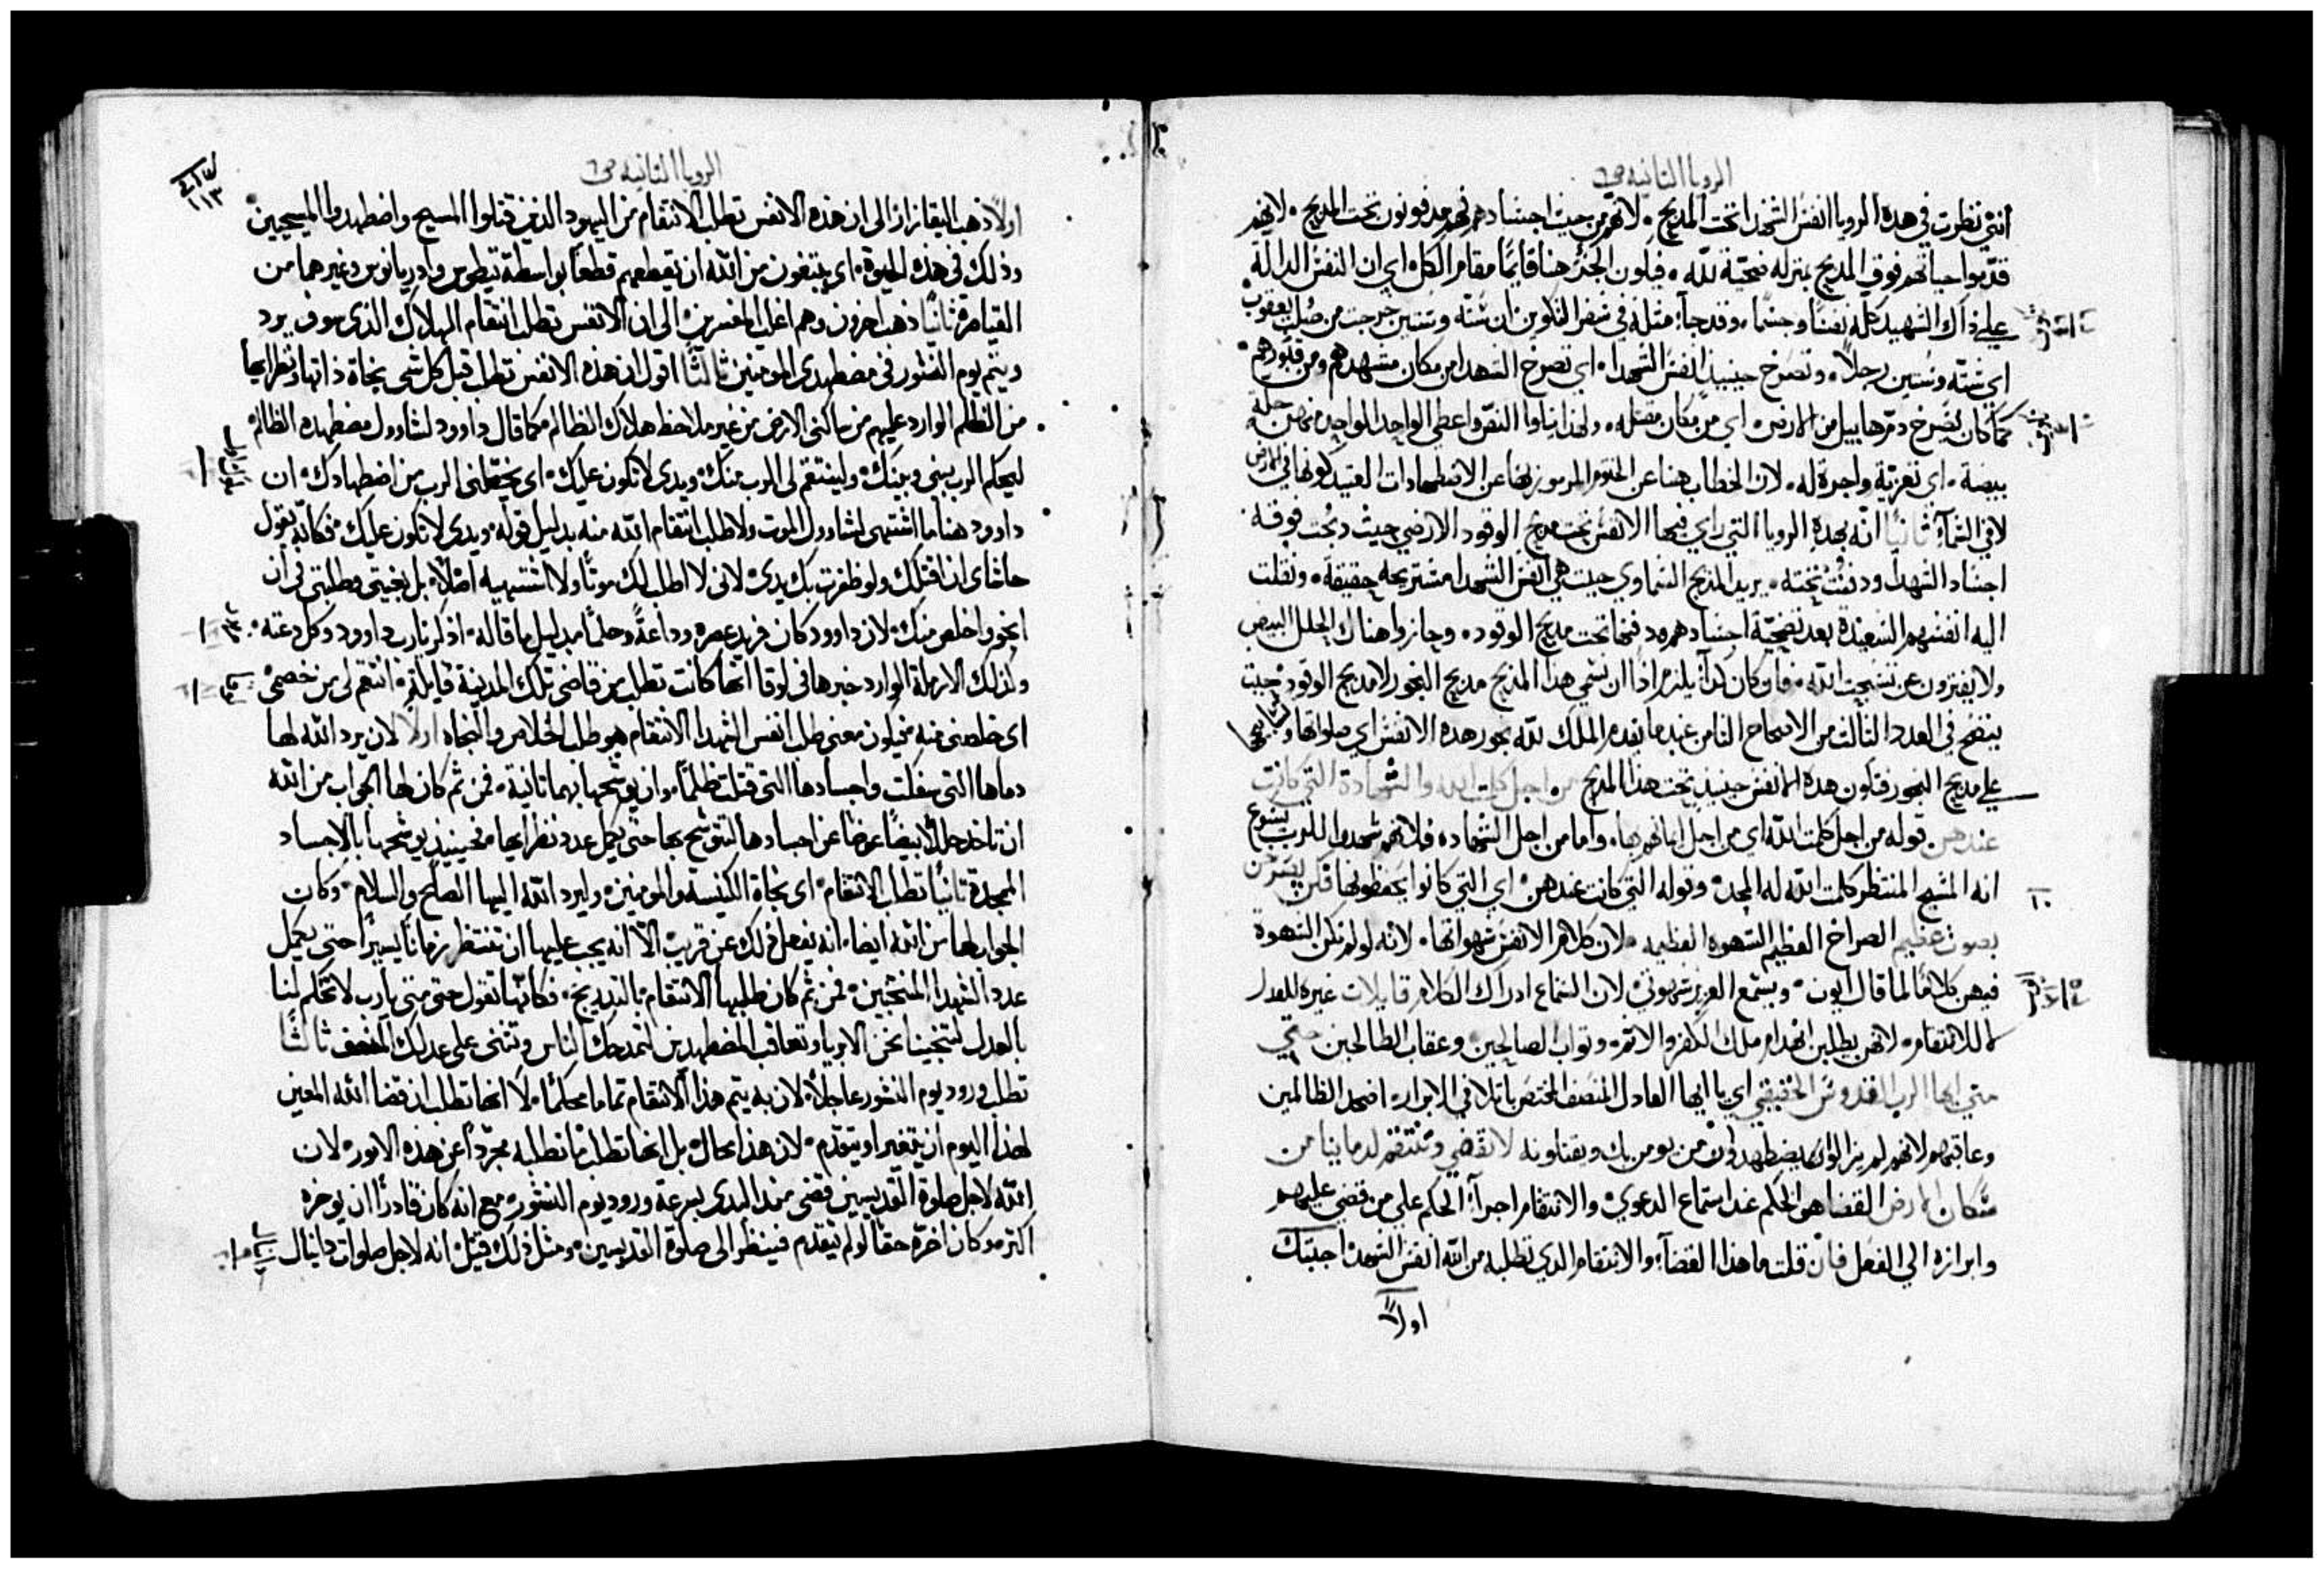 الرويا الثانيه ص٦
انني نظرت في هذه الرويا انفس الشهدا تحت المذبح. لانهم من حيث اجسادهم فهم مدفونون تحت المذبح. لانهم
قدموا حياتهم فوق المذبح بمنزله ضحيّة للّه. فيكون الجزء هنا قايمًا مقام الكل. اي ان النفس الدالة
علي ذاك الشهيد كله نفسًا وجسمًا. وقد جاء مثله في سفر التكوين ان ستّه وستين خرجت من صُلب يعقوب
اي ستّه وستين رجلاً. وتصرخ حينيذٍ انفس الشهدا. اي تصرخ الشهدا من مكان مشهدهم ومن قبورهم.
كما كان يصرخ دم هابيل من الارض. اي من مكان مقتله. ولهذا يتلوا النصّ واعطي الواحد الواحد منهن حلة
بيضة. اي تعزيّة واجرة له. لان الخطاب هنا عن الختوم المرموز بها عن الاضطهادات العتيد كونها في الارض
لا في السمآء ثانيًا انه بهذه الرويا التي راي فيها الانفس تحت مذبح الوقود الارضي حيث ذبحت فوقه
اجساد الشهدا ودفنت تحته. يريد المذبح السماوي حيث هي انفس الشهدا مستريحه حقيقة. ونقلت
اليه انفسهم السعيدة بعد تضحيّة اجسادهم ودفنها تحت مذبح الوقود. وحازوا هناك الحلل البيض
ولا يفترون عن تسبحت اللّه. فلو كان كذا يلزم اذًا ان نسمي هذا المذبح مذبح البخور لا مذبح الوقود حيث
يتضح في العدد الثالث من الاصحاح الثامن عندما يقدم الملاك للّه بخور هذه الانفس اي صلواتها وتضرعها
علي مذبح البخور فتكون هذه الانفس حينيذٍ تحت هذا المذبح من اجل كلمت اللّه والشهادة التي كانت
عندهن قوله من اجل كلمت اللّه اي من اجل ايمانهم بها. واما من اجل الشهاده فلانهم شهدوا للرب يسوع
انه المسيح المنتظر كلمت اللّه له المجد. وقوله التي كانت عندهن. اي التي كانوا يحفظونها فكن يصرخن
١٠
بصوت عظيم الصراخ العظيم الشهوه العظيمه. لان كلام الانفس شهواتها. لانه لو لم تكن الشهوة
فيهن كلامًا لما قال ايوب. ويسمع العزيز شهوتي لان السماع ادراك الكلام قايلات غيره للعدل
لا للانتقام. لانهن يطلبن انهدام ملك الكفر والاثم. وثواب الصالحين. وعقاب الطالحين حتي
متي ايها الرب القدوس الحقيقي اي يا ايها العادل المنصف المختص بالتلافي الابرار. اضحل الظالمين
وعاقبهم لانهم لم يزالوا يضطهدون من يومن بك ويقتلونه لا تقضي وتنتقم لدماينا من
سكان الارض القضا هو الحكم عند استماع الدعوي. والانتقام اجرآء الحكم علي من قضي عليهم
وابرازه الي الفعل فان قلت ما هذا القضآء والانتقام الذي تطلبه من اللّه انفس الشهدا اجبتك
اولاً
الرويا الثانيه ص٦
١١٣
اولاً ذهب البقازار الى ان هذه الانفس تطلب الانتقام من اليهود الذين قتلوا المسيح واضطهدوا المسيحيين
وذلك في هذه الحيوة. اي يبتغون من اللّه ان يقطعهم قطعًا بواسطة تيطوس وادريانوس وغيرهما من
القياصرة ثانيًا ذهب اخرون وهم اغلب المفسرين الى ان الانفس تطلب انتقام الهلاك الذي سوف يرد
ويتم يوم النشور في مضطهدي المومنين ثالثًا اقول ان هذه الانفس تطلب قبل كل شي نجاة ذاتها ونظرايها
من الظلم الوارد عليهم من ساكني الارض من غير ملاحظ هلاك الظالم كما قال داوود لشاوول مضطهده الظالم
ليحكم الرب بيني وبينك. ولينتقم لي الرب منك. ويدي لا تكون عليك. اي يخلّصني الرب من اضطهادك. ان
داوود هنا ما اشتهى لشاوول الموت ولا طلب انتقام اللّه منه بدليل قوله. ويدي لا تكون عليك. فكانّه يقول
حاشاي ان اقتلك ولو ظفرت بك يدي. لاني لا اطلب لك موتًا ولا اشتهيه اصلاً. بل بغيتي وطلبتي في ان
انجو واخلص منك. لان داوود كان فريد عصره وداعةً وحلمًا بدليل ما قاله. اذكر يا رب داوود وكل دعته.
وكذلك الارملة الوارد خبرها في لوقا انها كانت تطلب من قاضي تلك المدينة قايلة. انتقم لي من خصمي.
اي خلصني منه فيكون معنى طلب انفس الشهدا الانتقام هو طلب الخلاص والنجاه اولاً لان يرد اللّه لها
دماها التي سفكت واجسادها التي قتلت ظلمًا. وان يوشحها بهما ثانية. فمن ثم كان لها الجواب من اللّه
ان تاخذ حللاً بيضًا عوضًا عن اجسادها لتتوشح بها حتى يكمل عدد نظرايها. فحينيذٍ يوشحها بالاجساد
الممجدة ثانيًا تطلب الانتقام. اي نجاة الكنيسة والمومنين. وليرد اللّه اليها الصلح والسلام. وكان
الجواب لها من اللّه ايضا. انه يفعل ذلك عن قريب. الا انه يجب عليها ان تنتظر زمانًا يسيرًا حتى يكمل
عدد الشهدا المنتخبين. فمن ثم كان طلبها الانتقام بالتدريج. فكانّها تقول حتى متى يا رب لا تحكم لنا
بالعدل لتنجينا نحن الابريا وتعاقب المضطهدين لتمدحك الناس وتثني على عدلك المنصف ثالثًا
تطلب ورود يوم النشور عاجلاً. لان به يتم هذا الانتقام تماما محكمًا. لا انها تطلب ان قضا اللّه المعين
لهذا اليوم ان يتغير او يتقدم. لان هذا محال. بل انها تطلب ما تطلبه مجردًا عن هذه الامور. لان
اللّه لاجل صلوة القديسين قضى منذ البدى بسرعة ورود يوم النشور. مع انه كان قادرًا ان يوخره
اكثر. وكان اخّره حقًا لو لم يتقدم فينظر الى صلوة القديسين. ومثل ذلك قيل. انه لاجل صلوات دانيال